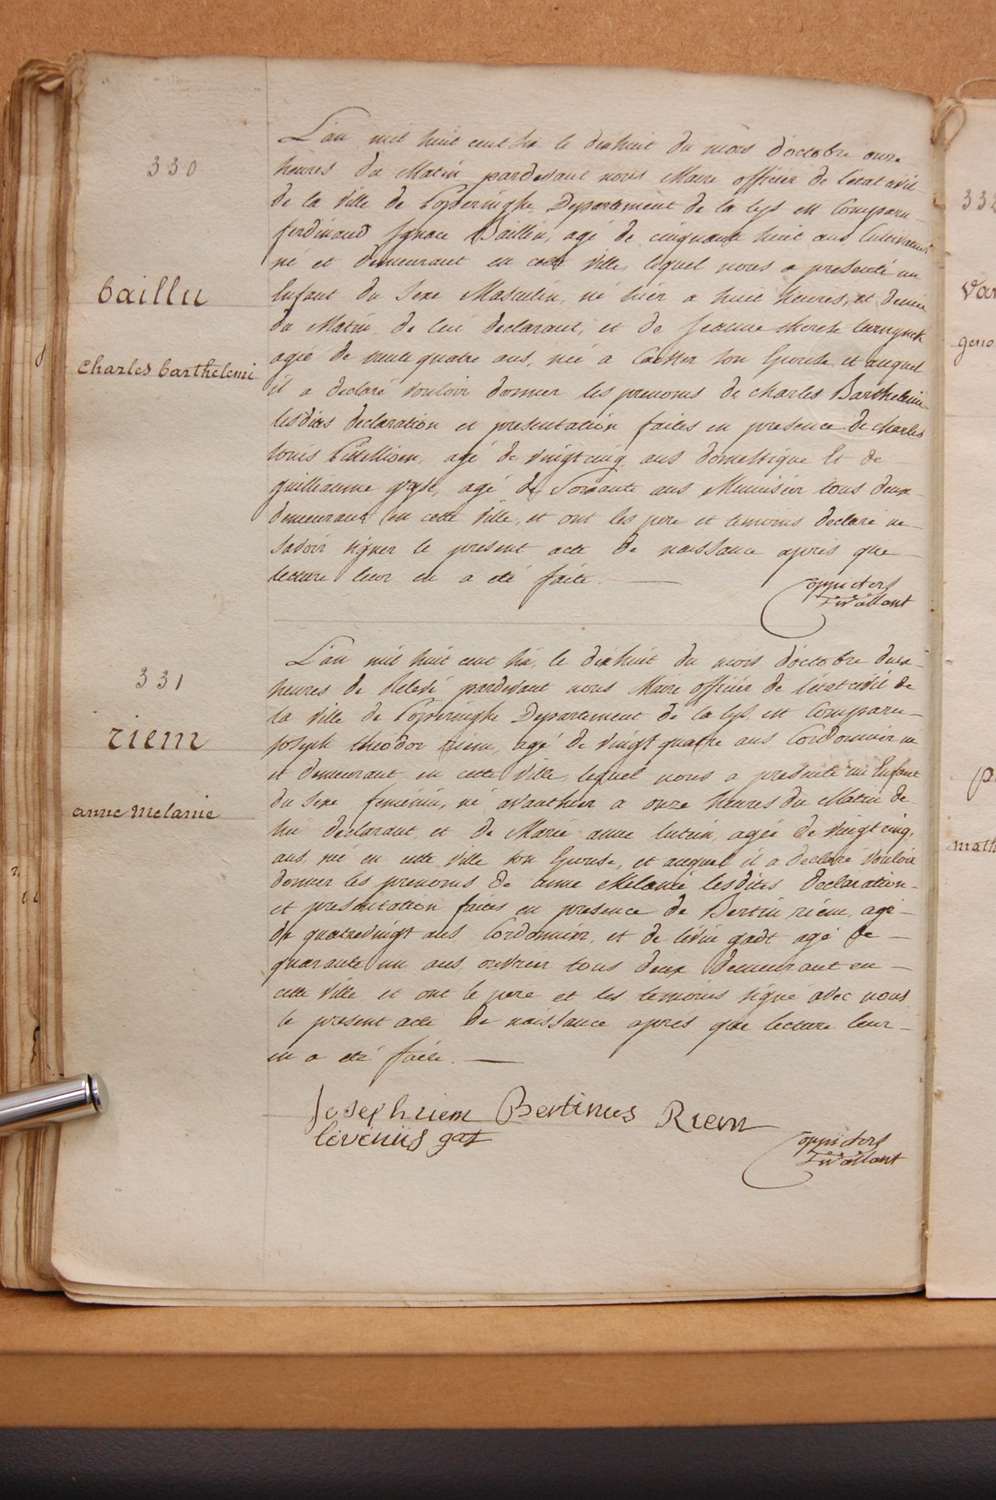 330
baillu
charles barthélemi
L'an mil huit cent six le dixhuit du mois d'octobre onze
heures du Matin pardevant nous Maire officier de l'état civil
de la ville de Poperinghe Departement de la Lys est Comparu
ferdinand Ignace Baillu, agé de cinquante huit ans Cultivateur
né et demeurant en cette ville, lequel nous a presenté un
Enfant du Sexe Masculin, né hier a huit heures, et demie
du Matin de lui declarant, et de Jeanne
agée de trente quatre ans, née a Castre son Epouse et auquel
il a declaré vouloir donner les prenoms de charles Barthelemi
lesdites declaration et presentation faites en presence de charles
louis agé de vingtcinq ans domestique Et de
guillaume agé de Soixante ans Menuisier tous deux
demeurant en cette ville, et ont les pere et temoins declaré ne
savoir signer le present acte de naissance après que
lecture leur en a été faite.
331
riem
anne melanie
L'an mil huit cent six, le dixhuit du mois d'octobre deux
heures de relevé pardevant nous Maire officier de l'état civil de
la ville de Poperinghe Departement de la Lys est Comparu
Joseph theodor riem, agé de vingt quatre ans Cordonnier né
et demeurant en cette ville, lequel nous a presenté un Enfant
du sexe feminin, né avanthier a onze heures du Matin de
lui declarant et de Marie anne agée de vingtcinq
ans, née en cette ville son Epouse, et auquel il a declaré vouloir
donner les prenoms de anne Melanie lesdites declaration
et presentation faites en presence de Bertin riem, agé
de quatrevingt ans Cordonnier, et de livin gadt agé de
quarante un ans ouvrier tous deux demeurant en
cette ville et ont le pere et les temoins signé avec nous
le present acte de naissance après que lecture leur
en a été faite.
Joseph riem Bertinus Riem
levinus gat
332
Van